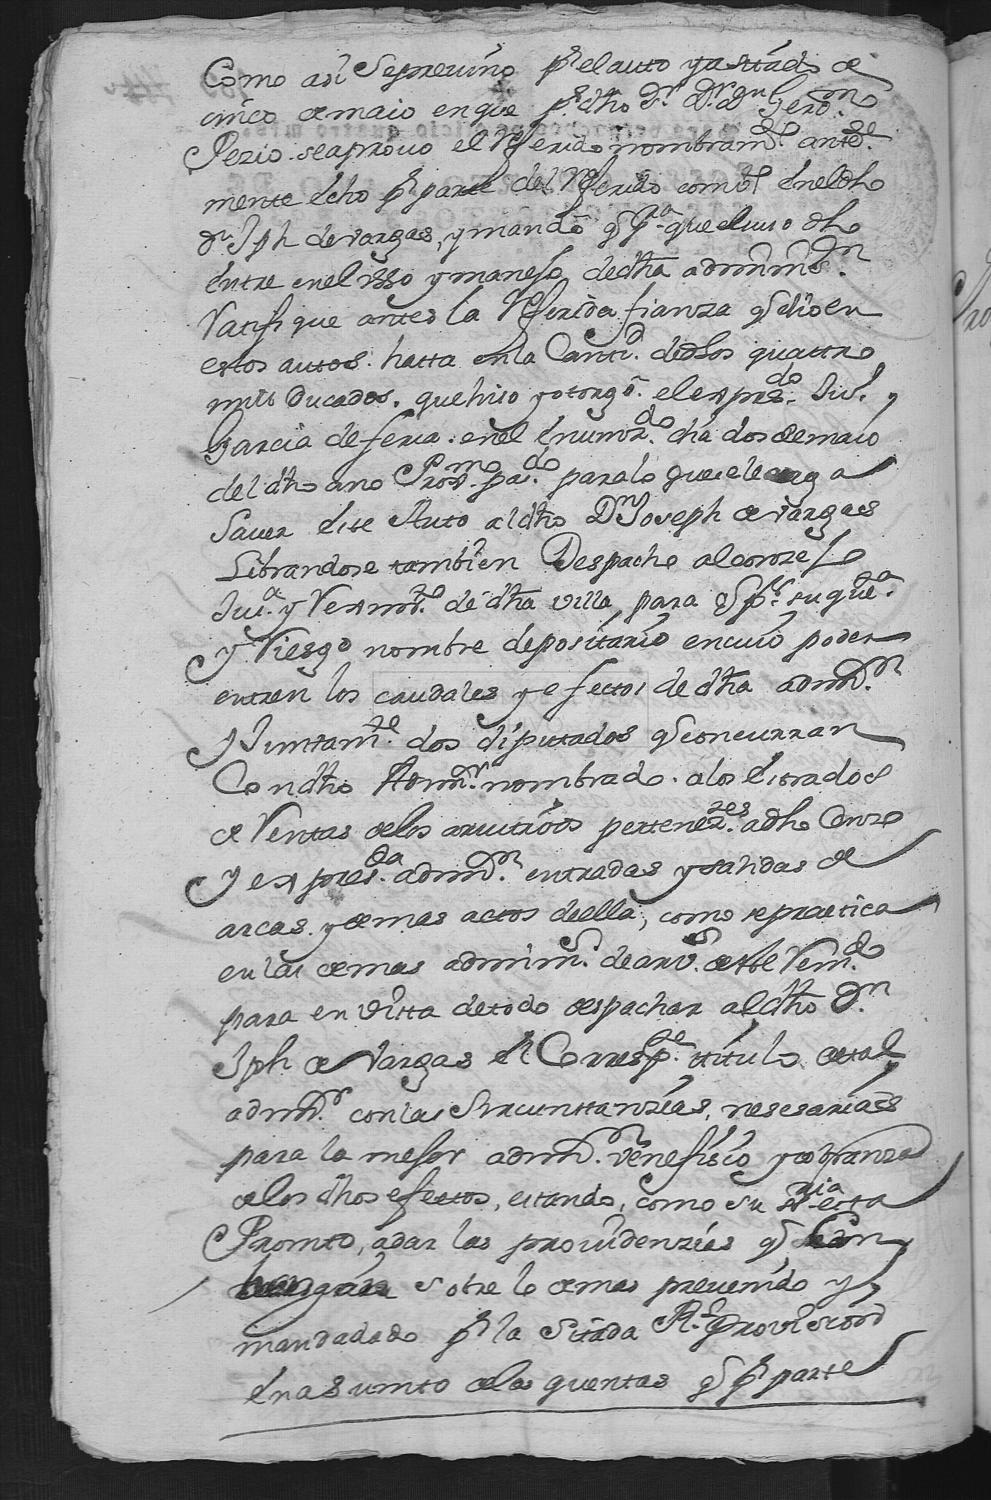 Como asi Se previno pr el auto ya sitado de
cinco de maio en que pr dho Sr. Dr. Dn Geronmo
Pezio. se aprovo el Referido nombramto. ante.
mente echo pr parte del Referido
Dn. Jph de vargas, y mando q pa. que el suso dho
Entre en el usso y manejo de dha admin.on
Ratifique antes la Referida fianza q dio en
estos autos. hasta en la Cantid. de dhos quattro
mill Ducados. que hiso y otorgo. el expresdo. Jun. y
Garcia de feria. en el enumzdo. dia dos de maio
del dho ano Proxmo. pasdo. para lo que se le haga
Saver este Auto al dho Dn Joseph de vargas
Librandose tambien Despacho al conzejo
Jusa. y Reximto. de dha villa, para q pr. su quena.
y Riesgo nombre depositario en cuio poder
entren los caudales y efectos de dha admon.
y Juntamte. dos diputados q concurran
Con dho Admor. nombrado. a los estrados
de Rentas de los aruitrios pertenezes. a dho Conzo
y expresda. admon. entradas y salidas de
arcas. y demas actos de ella, como se practica
en las demas adminon. de arvs. de este Reindo.
para en vista de todo despachar al dho Dn
Jph. de Vargas el Correspte. titulo de tal
admor. con las Sircunstanzias, nesesarias
para la mejor admon. venefisio y cobranza
de los dhos efectos, estando, como su sria esta
Promto, a dar las providenzias q
sobre lo demas prevenido y
mandadado pr la Sitada Rl. provision
En asumto de las quentas q pr parte